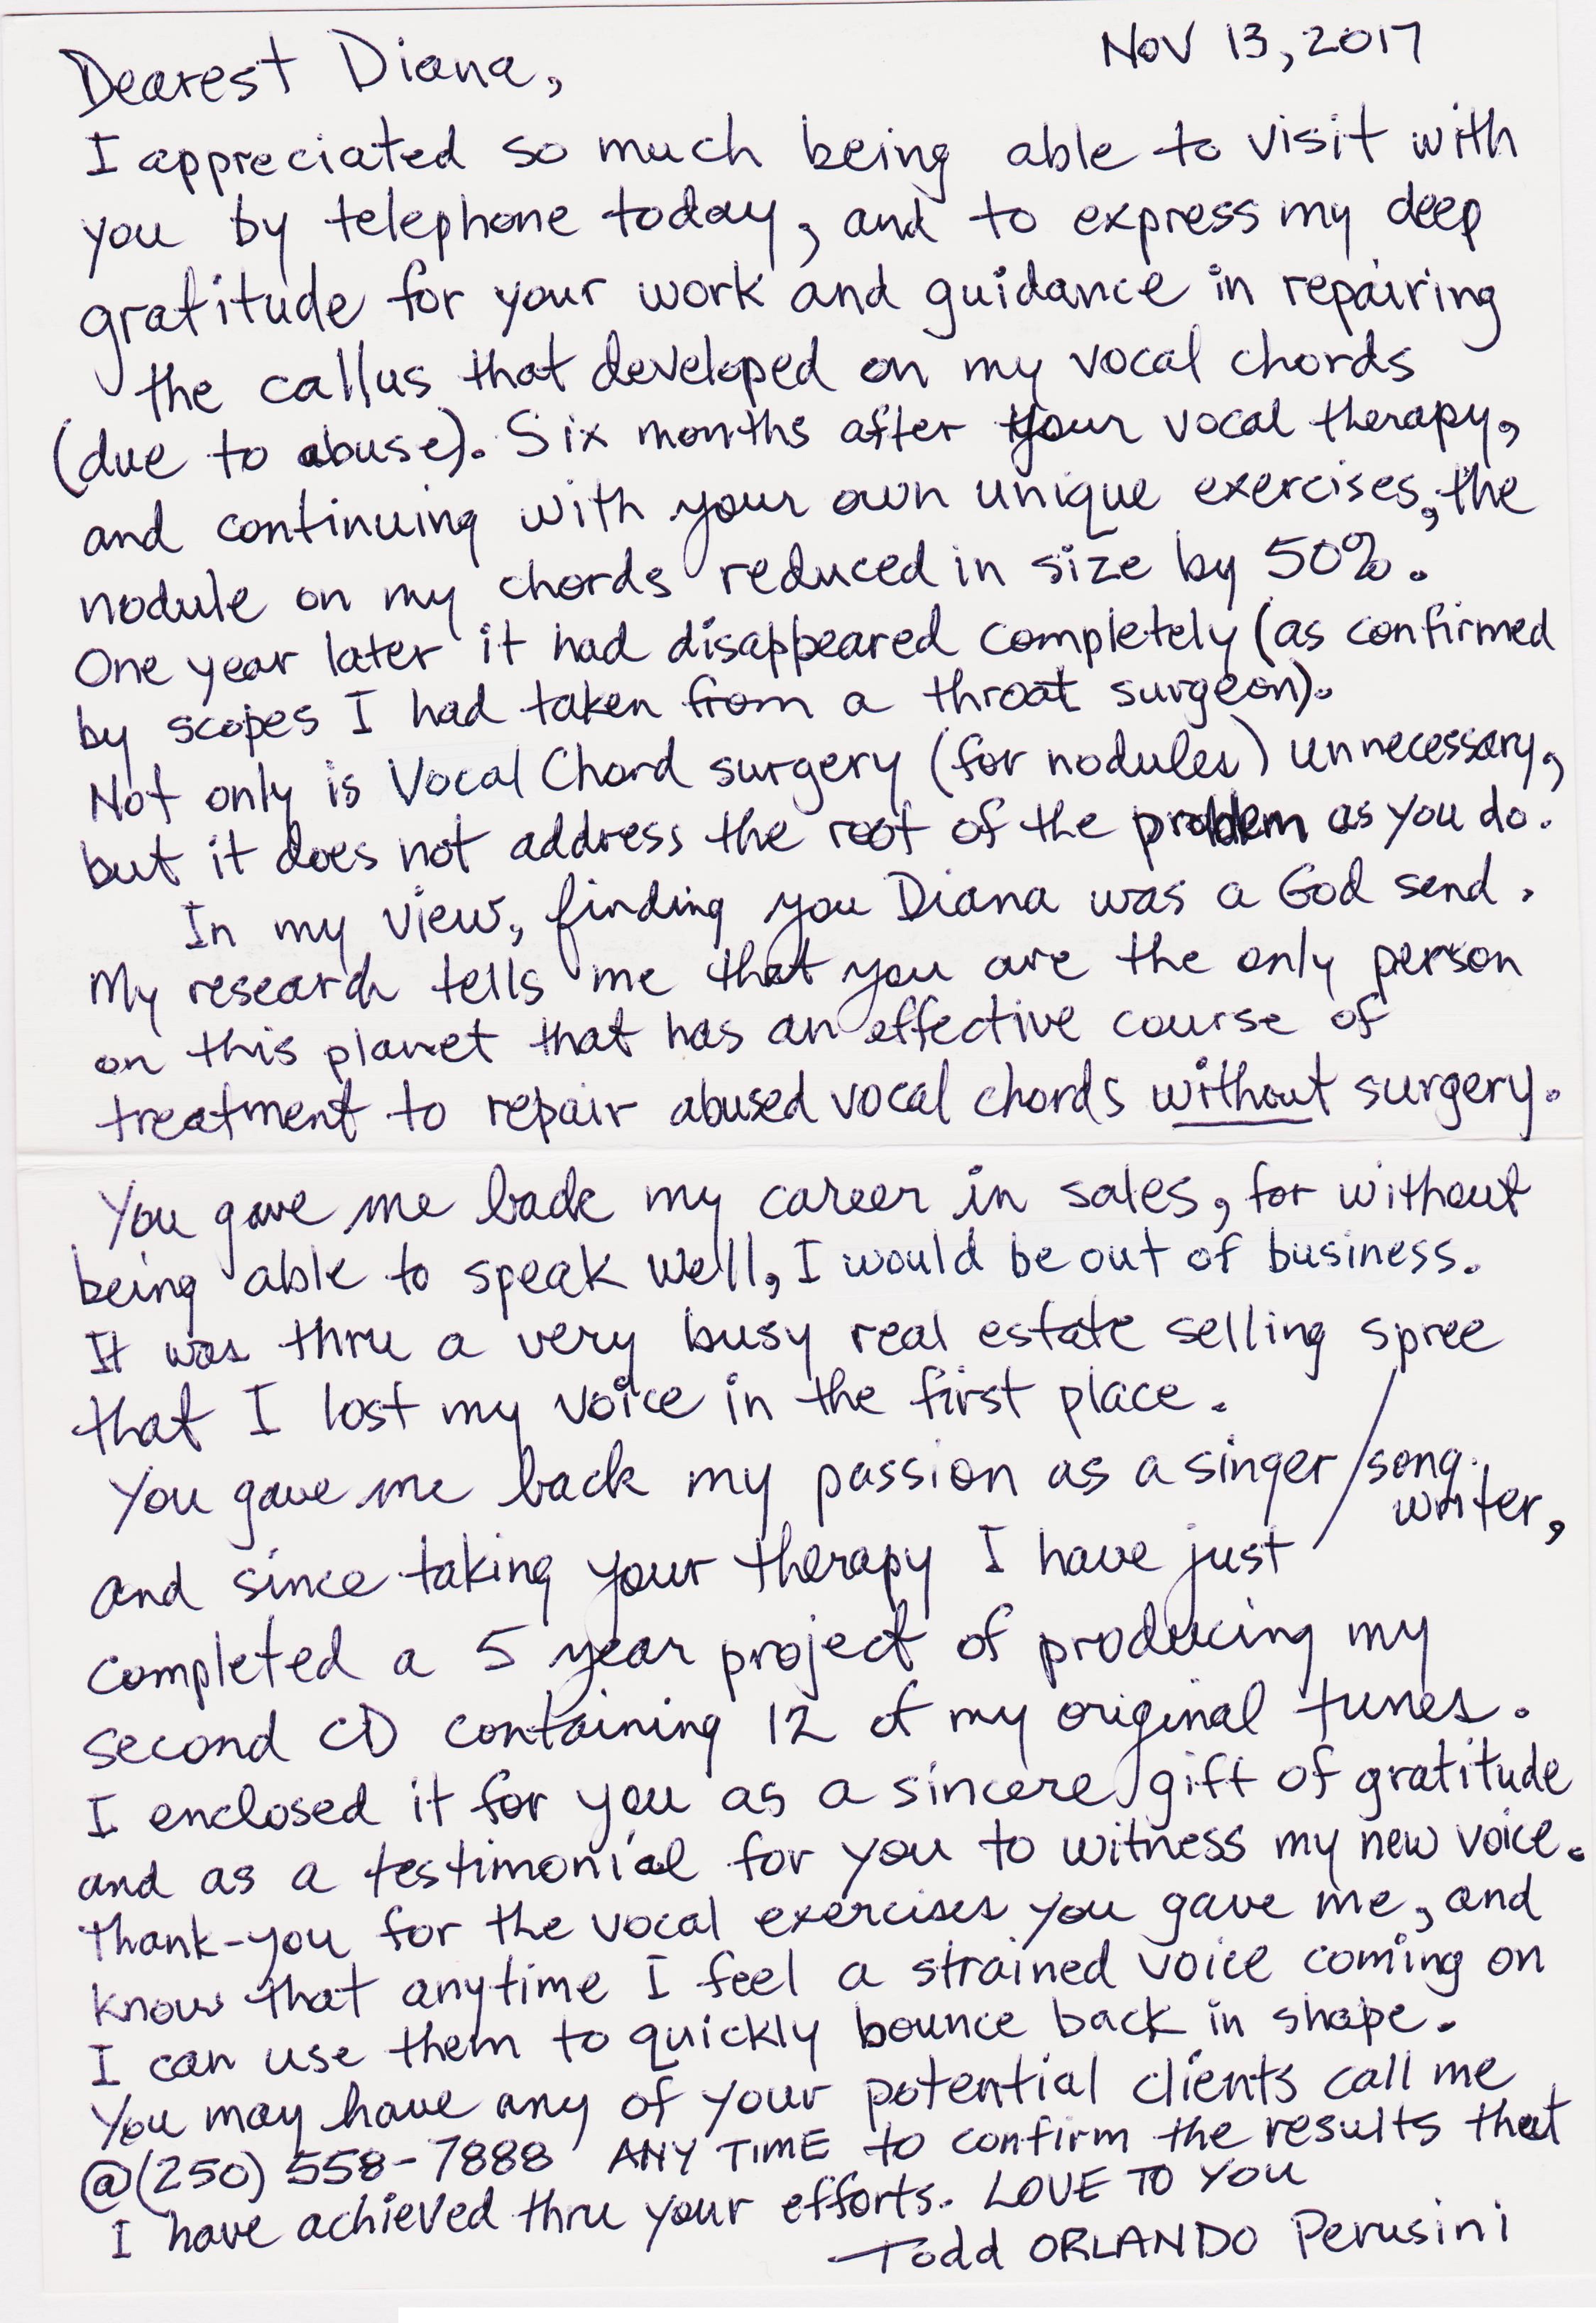 Nov 13, 2017
Dearest Diana,
I appreciated so much being able to visit with
you by telephone today, and to express my deep
gratitude for your work and guidance in repairing
the callus that developed on my vocal chords
(due to abuse). Six months after your vocal therapy,
and continuing with your own unique exercises, the
nodule on my chords reduced in size by 50%.
One year later it had disappeared completely (as confirmed
by scopes I had taken from a throat surgeon).
Not only is Vocal Chord surgery (for nodules) unnecessary,
but it does not address the root of the problem as you do.
In my view, finding you Diana was a God send.
My research tells me that you are the only person
on this planet that has an effective course of
treatment to repair abused vocal chords without surgery.
You gave me back my career in sales, for without
being able to speak well, I would be out of business.
It was thru a very busy real estate selling spree
that I lost my voice in the first place.
You gave me back my passion as a singer/song.
writer,
and since taking your therapy I have just
completed a 5 year project of producing my
second CD containing 12 of my original tunes.
I enclosed it for you as a sincere gift of gratitude
and as a testimonial for you to witness my new voice.
Thank-you for the vocal exercises you gave me, and
know that anytime I feel a strained voice coming on
I can use them to quickly bounce back in shape.
You may have any of your potential clients call me
@(250) 558-7888 ANY TIME to confirm the results that
I have achieved thru your efforts. LOVE TO YOU
Todd ORLANDO Perusini